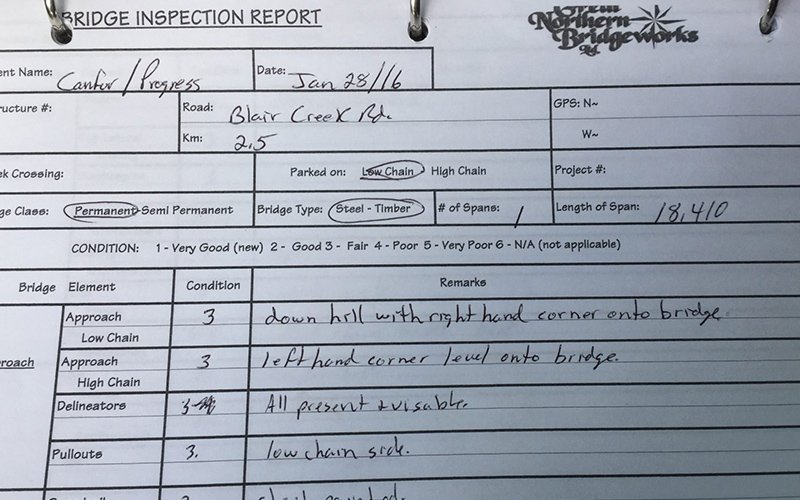 BRIDGE INSPECTION REPORT
Great
Northern
Bridgeworks
Ltd.
ent Name: Canfor/Progress Date: Jan 28/16
ructure #: Road: Blair Creek Rd. GPS: N~
Km: 2.5 W~
ek Crossing: Parked on: Low Chain High Chain Project #:
ge Class: Permanent-Semi Permanent Bridge Type: Steel - Timber # of Spans: 1 Length of Span: 18,410
CONDITION: 1 - Very Good (new) 2 - Good 3 - Fair 4 - Poor 5 - Very Poor 6 - N/A (not applicable)
Bridge Element Condition Remarks
Approach 3 down hill with right hand corner onto bridge
Low Chain
roach Approach 3 left hand corner level onto bridge.
High Chain
Delineators 3 All present & visable.
Pullouts 3. low chain side.